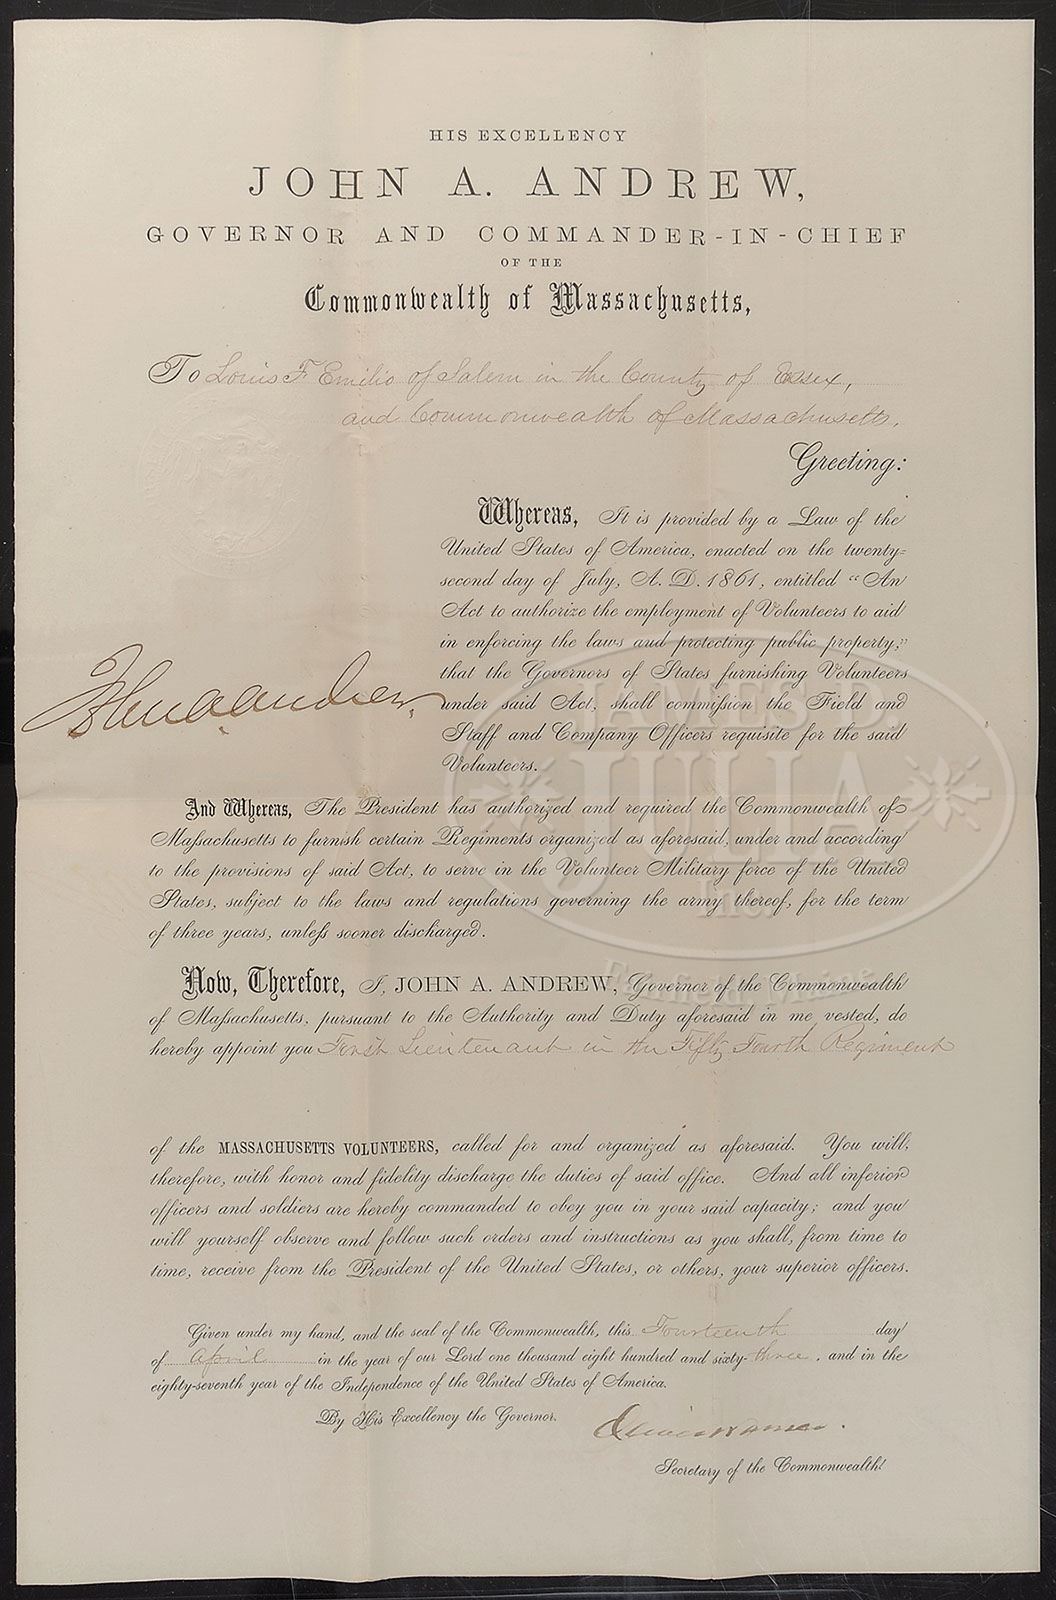 HIS EXCELLENCY
JOHN A. ANDREW,
GOVERNOR AND COMMANDER-IN-CHIEF
OF THE
Commonwealth of Massachusetts,
To Louis F. Emilio of Salem in the County of Essex,
and Commonwealth of Massachusetts.
Greeting:
Whereas, It is provided by a Law of the
United States of America, enacted on the twenty-
second day of July, A. D. 1861, entitled "An
Act to authorize the employment of Volunteers to aid
in enforcing the laws and protecting public property,"
that the Governors of States furnishing Volunteers
under said Act, shall commission the Field and
John A Andrew.
Staff and Company Officers requisite for the said
Volunteers.
JAMES D.
JULIA
Inc.
Fairfield, Maine
And Whereas, The President has authorized and required the Commonwealth of
Massachusetts to furnish certain Regiments organized as aforesaid, under and according
to the provisions of said Act, to serve in the Volunteer Military force of the United
States, subject to the laws and regulations governing the army thereof, for the term
of three years, unless sooner discharged.
Now, Therefore, I, JOHN A. ANDREW, Governor of the Commonwealth
of Massachusetts, pursuant to the Authority and Duty aforesaid in me vested, do
hereby appoint you First Lieutenant in the Fifty Fourth Regiment
of the MASSACHUSETTS VOLUNTEERS, called for and organized as aforesaid. You will,
therefore, with honor and fidelity discharge the duties of said office. And all inferior
officers and soldiers are hereby commanded to obey you in your said capacity; and you
will yourself observe and follow such orders and instructions as you shall, from time to
time, receive from the President of the United States, or others, your superior officers.
Given under my hand, and the seal of the Commonwealth, this Fourteenth day
of April in the year of our Lord one thousand eight hundred and sixty-three, and in the
eighty-seventh year of the Independence of the United States of America.
By His Excellency the Governor.
Oliver Warner.
Secretary of the Commonwealth.